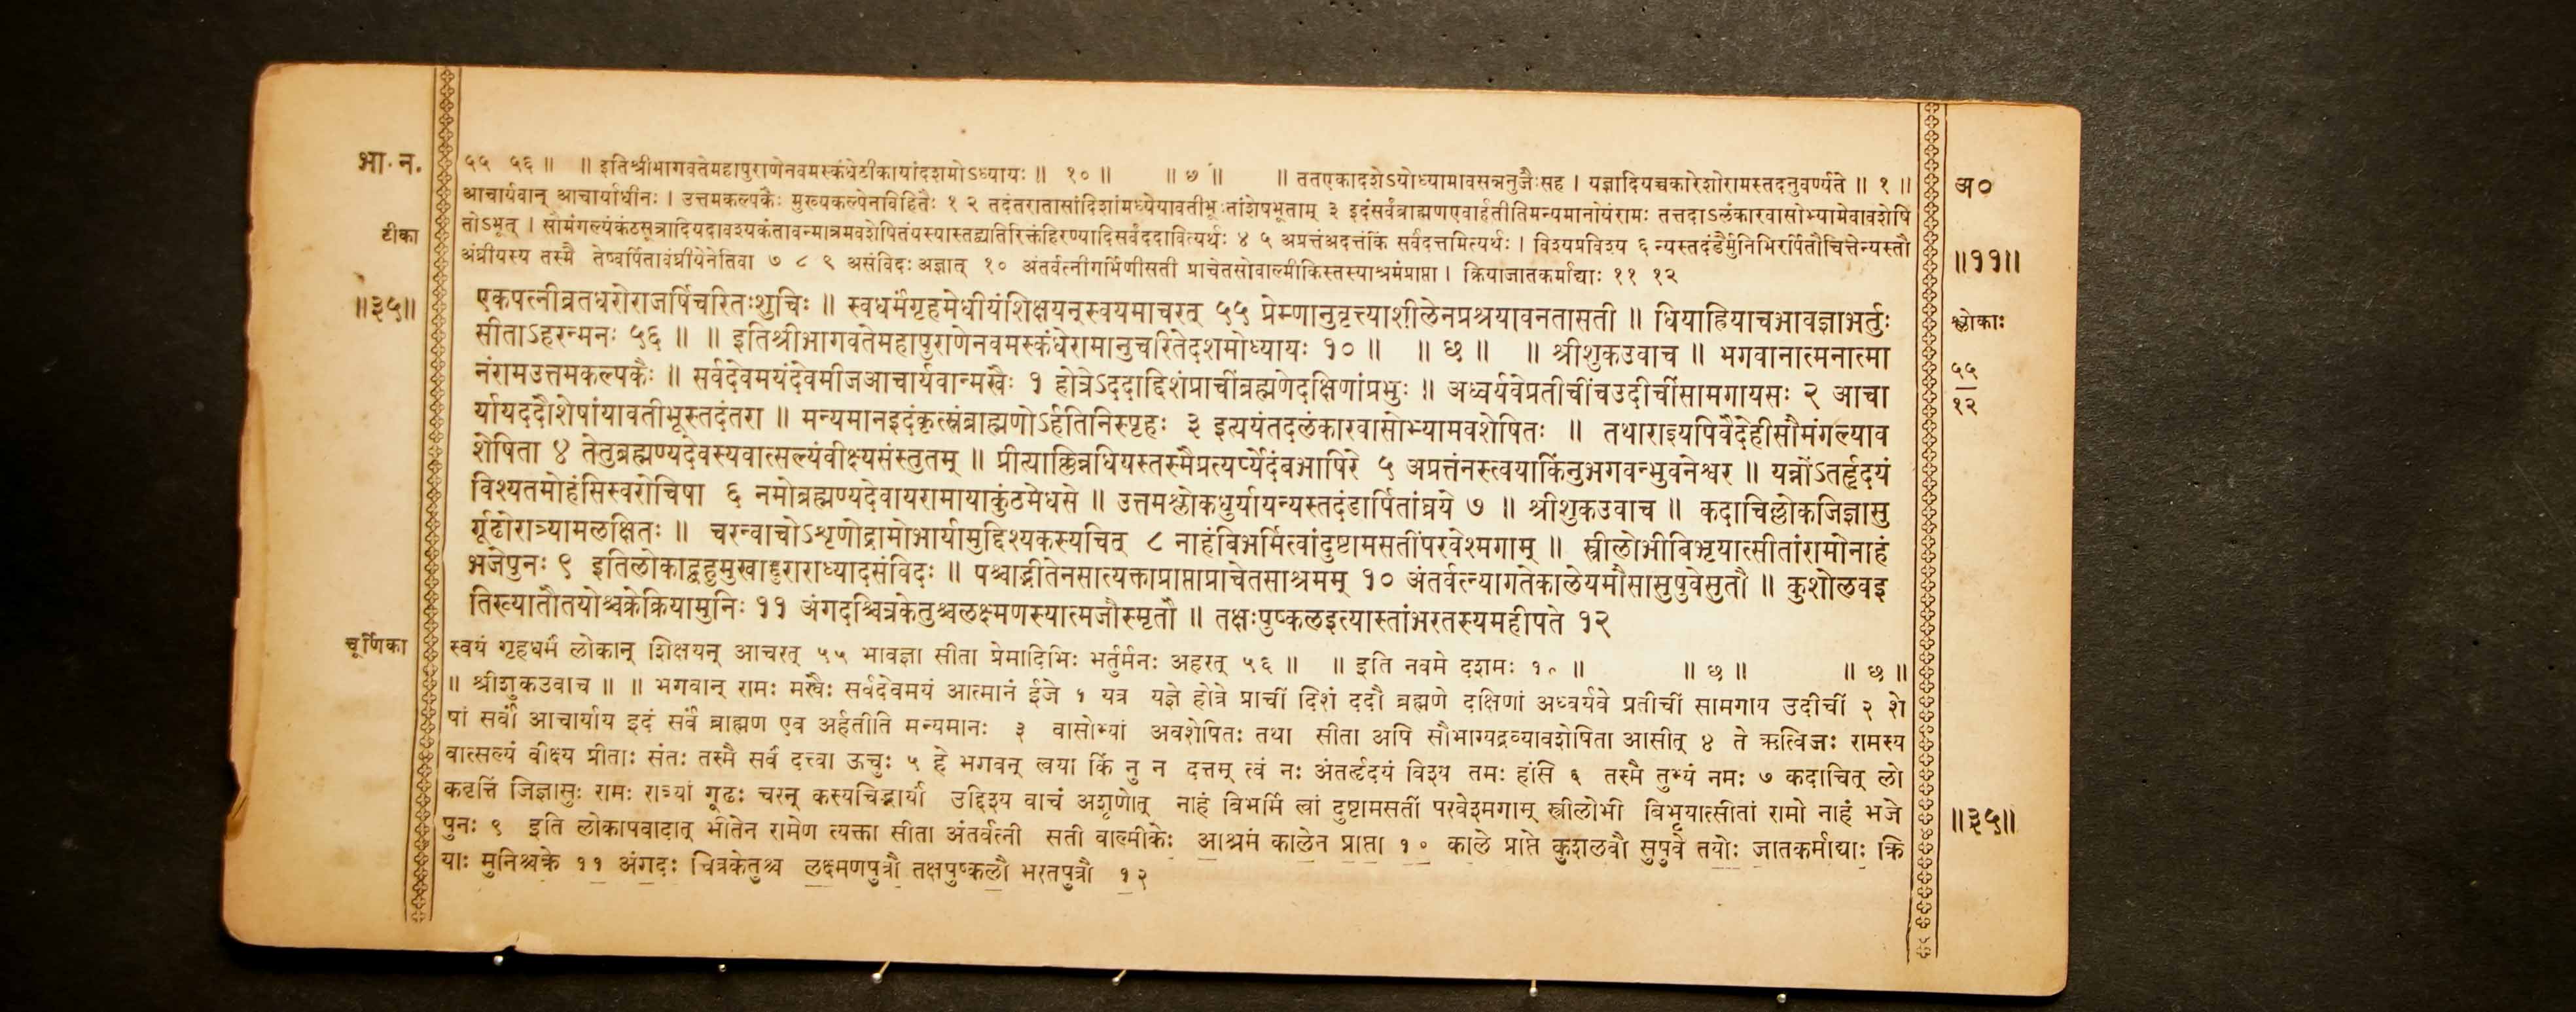 भा. न.
टीका
॥३५॥
५५ ५६ ॥ ॥ इतिश्रीभागवतेमहापुराणेनवमस्कंधेटीकायांदशमोऽध्यायः ॥ १० ॥ ॥ ७ ॥ ॥ ततएकादशेऽयोध्यामावसन्ननुजैःसह । यज्ञादियच्चकारेशोरामस्तदनुवर्ण्यते ॥ १ ॥
आचार्यवान् आचार्याधीनः । उत्तमकल्पकैः मुख्यकल्पेनविहितैः १ २ तदंतरातासांदिशांमध्येयावतीभूःतांशेषभूताम् ३ इदंसर्वंब्राह्मणएवार्हतीतिमन्यमानोयंरामः तत्तदाऽलंकारवासोभ्यामेवावशेषि
तोऽभूत् । सौमंगल्यंकंठसूत्रादियदावश्यकंतावन्मात्रमवशेषितंयस्यास्तद्व्यतिरिक्तंहिरण्यादिसर्वंददावित्यर्थः ४ ५ अप्रत्तंअदत्तंकिं सर्वंदत्तमित्यर्थः । विश्यप्रविश्य ६ न्यस्तदंडैर्मुनिभिरर्पितौचित्तेन्यस्तौ
अंघ्रीयस्य तस्मै तेष्वर्पितावंघ्रीयेनेतिवा ७ ८ ९ असंविदः अज्ञात् १० अंतर्वत्नीगर्भिणीसती प्राचेतसोवाल्मीकिस्तस्याश्रमंप्राप्ता । क्रियाजातकर्माद्याः ११ १२
एकपत्नीव्रतधरोराजर्षिचरितःशुचिः ॥ स्वधर्मंगृहमेधीयंशिक्षयन्स्वयमाचरत् ५५ प्रेम्णानुवृत्त्याशीलेनप्रश्रयावनतासती ॥ धियाह्रियाचभावज्ञाभर्तुः
सीताऽहरन्मनः ५६ ॥ ॥ इतिश्रीभागवतेमहापुराणेनवमस्कंधेरामानुचरितेदशमोध्यायः १० ॥ ॥ छ ॥ ॥ श्रीशुकउवाच ॥ भगवानात्मनात्मा
नंरामउत्तमकल्पकैः ॥ सर्वदेवमयंदेवमीजआचार्यवान्मखैः १ होत्रेऽददाद्दिशंप्राचींब्रह्मणेदक्षिणांप्रभुः ॥ अध्वर्यवेप्रतीचींचउदीचींसामगायसः २ आचा
र्यायददौशेषांयावतीभूस्तदंतरा ॥ मन्यमानइदंकृत्स्नंब्राह्मणोऽर्हतिनिस्पृहः ३ इत्ययंतदलंकारवासोभ्यामवशेषितः ॥ तथाराज्ञ्यपिवैदेहीसौमंगल्याव
शेषिता ४ तेतुब्रह्मण्यदेवस्यवात्सल्यंवीक्ष्यसंस्तुतम् ॥ प्रीत्याक्लिन्नधियस्तस्मैप्रत्यर्प्येदंबभाषिरे ५ अप्रत्तंनस्त्वयाकिंनुभगवन्भुवनेश्वर ॥ यन्नोंऽतर्हृदयं
विश्यतमोहंसिस्वरोचिषा ६ नमोब्रह्मण्यदेवायरामायाकुंठमेधसे ॥ उत्तमश्लोकधुर्यायन्यस्तदंडार्पितांघ्रये ७ ॥ श्रीशुकउवाच ॥ कदाचिल्लोकजिज्ञासु
र्गूढोरात्र्यामलक्षितः ॥ चरन्वाचोऽशृणोद्रामोभार्यामुद्दिश्यकस्यचित् ८ नाहंबिभर्मित्वांदुष्टामसतींपरवेश्मगाम् ॥ स्त्रीलोभीबिभृयात्सीतांरामोनाहं
भजेपुनः ९ इतिलोकाद्बहुमुखाद्दुराराध्यादसंविदः ॥ पत्याभीतेनसात्यक्ताप्राप्ताप्राचेतसाश्रमम् १० अंतर्वत्न्यागतेकालेयमौसासुषुवेसुतौ ॥ कुशोलवइ
तिख्यातौतयोश्चक्रेक्रियामुनिः ११ अंगदश्चित्रकेतुश्चलक्ष्मणस्यात्मजौस्मृतौ ॥ तक्षःपुष्कलइत्यास्तांभरतस्यमहीपते १२
चूर्णिका
स्वयं गृहधर्मं लोकान् शिक्षयन् आचरत् ५५ भावज्ञा सीता प्रेमादिभिः भर्तुर्मनः अहरत् ५६ ॥ ॥ इति नवमे दशमः १० ॥ ॥ छ ॥ ॥ छ ॥
॥ श्रीशुकउवाच ॥ ॥ भगवान् रामः मखैः सर्वदेवमयं आत्मानं ईजे १ यत्र यज्ञे होत्रे प्राचीं दिशं ददौ ब्रह्मणे दक्षिणां अध्वर्यवे प्रतीचीं सामगाय उदीचीं २ शे
षां सर्वां आचार्याय इदं सर्वं ब्राह्मण एव अर्हतीति मन्यमानः ३ वासोभ्यां अवशेषितः तथा सीता अपि सौभाग्यद्रव्यावशेषिता आसीत् ४ ते ऋत्विजः रामस्य
वात्सल्यं वीक्ष्य प्रीताः संतः तस्मै सर्वं दत्त्वा ऊचुः ५ हे भगवन् त्वया किं नु न दत्तम् त्वं नः अंतर्हृदयं विश्य तमः हंसि ६ तस्मै तुभ्यं नमः ७ कदाचित् लो
कवृत्तिं जिज्ञासुः रामः रात्र्यां गूढः चरन् कस्यचिद्भार्यां उद्दिश्य वाचं अशृणोत् नाहं बिभर्मि त्वां दुष्टामसतीं परवेश्मगाम् स्त्रीलोभी बिभृयात्सीतां रामो नाहं भजे
पुनः ९ इति लोकापवादात् भीतेन रामेण त्यक्ता सीता अंतर्वत्नी सती वाल्मीकेः आश्रमं कालेन प्राप्ता १० काले प्राप्ते कुशलवौ सुषुवे तयोः जातकर्माद्याः क्रि
याः मुनिश्चक्रे ११ अंगदः चित्रकेतुश्च लक्ष्मणपुत्रौ तक्षपुष्कलौ भरतपुत्रौ १२
अ०
॥११॥
श्लोकाः
५५
१२
॥३५॥